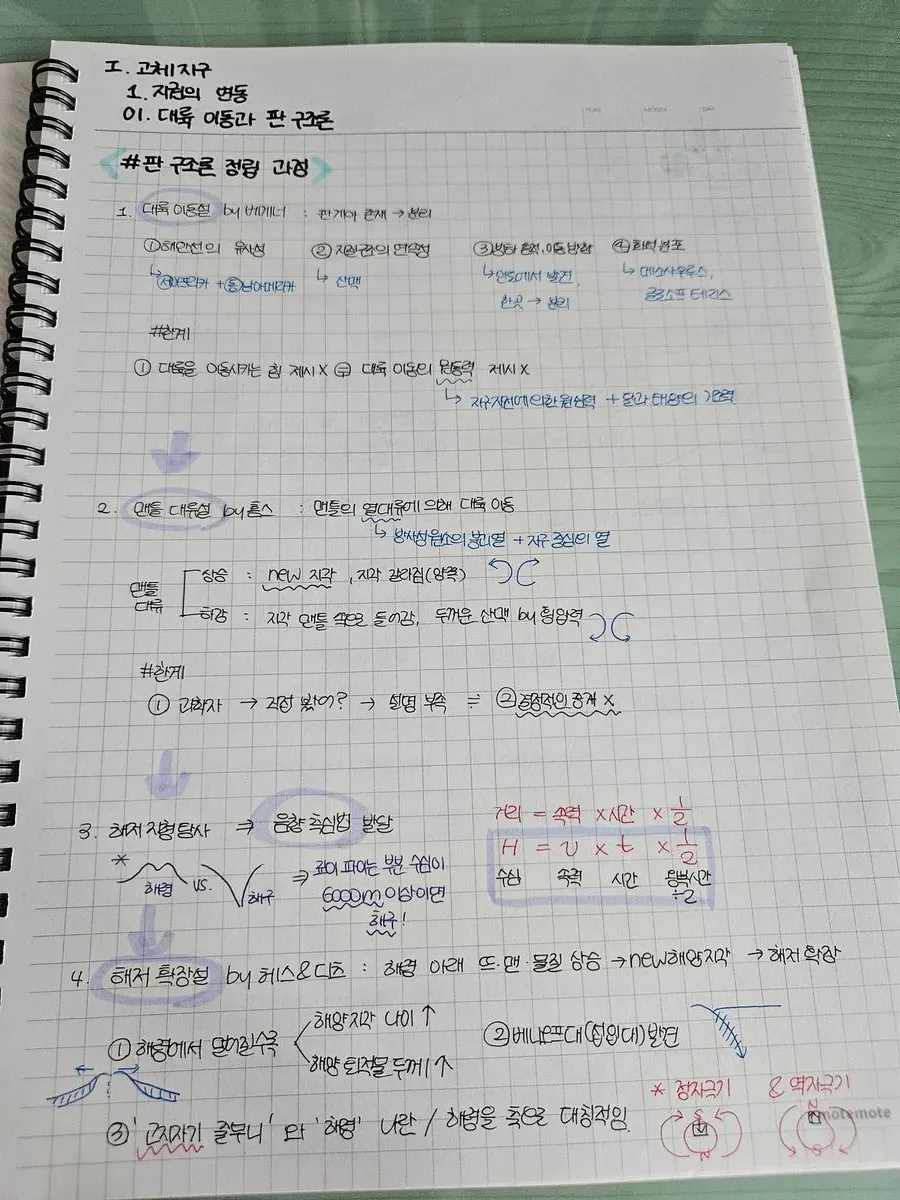 I. 고체지구
1. 지권의 변동
01. 대륙 이동과 판 구조론
YEAR MONTH DAY
<#판 구조론 정립 과정>
1. 대륙이동설 by 베게너 : 판게아 존재 → 분리
①해안선의 유사성 ② 지질구조의 연속성 ③빙하 흔적, 이동 방향 ④ 화석 분포
↳서아프리카 + 동남아메리카 ↳ 산맥 ↳인도에서 발견, ↳ 메소사우루스,
한곳 → 분리 글로소프테리스
#한계
① 대륙을 이동시키는 힘 제시 X = 대륙 이동의 원동력 제시 X
↳ 지구자전에 의한 원심력 + 달과 태양의 기조력
2. 맨틀 대류설 by 홈스 : 맨틀의 열대류에 의해 대륙 이동
↳ 방사성 원소의 붕괴열 + 지구 중심의 열
맨틀 대류
상승 : new 지각, 지각 갈라짐(장력)
하강 : 지각 맨틀 속으로 들어감, 두꺼운 산맥 by 횡압력
#한계
① 과학자 → 직접 봤어? → 설명 부족 = ②결정적인 증거 X
3. 해저 지형 탐사 ⇒ 음향 측심법 발달
거리 = 속력 × 시간 × 1/2
H = v × t × 1/2
수심 속력 시간 왕복시간 ÷2
* 해령 vs. 해구 ⇒ 깊이 파이는 부분 수심이
6000m 이상이면
해구!
4. 해저 확장설 by 헤스&디츠 : 해령 아래 뜨·맨·물질 상승 → new해양지각 → 해저 확장
① 해령에서 멀어질수록
해양지각 나이 ↑
해양 퇴적물 두께 ↑
②베니오프대(섭입대) 발견
* 정자극기 & 역자극기
S N
N S
③ '고지자기 줄무늬' 와 '해령' 나란 / 해령을 축으로 대칭적임.
motemote